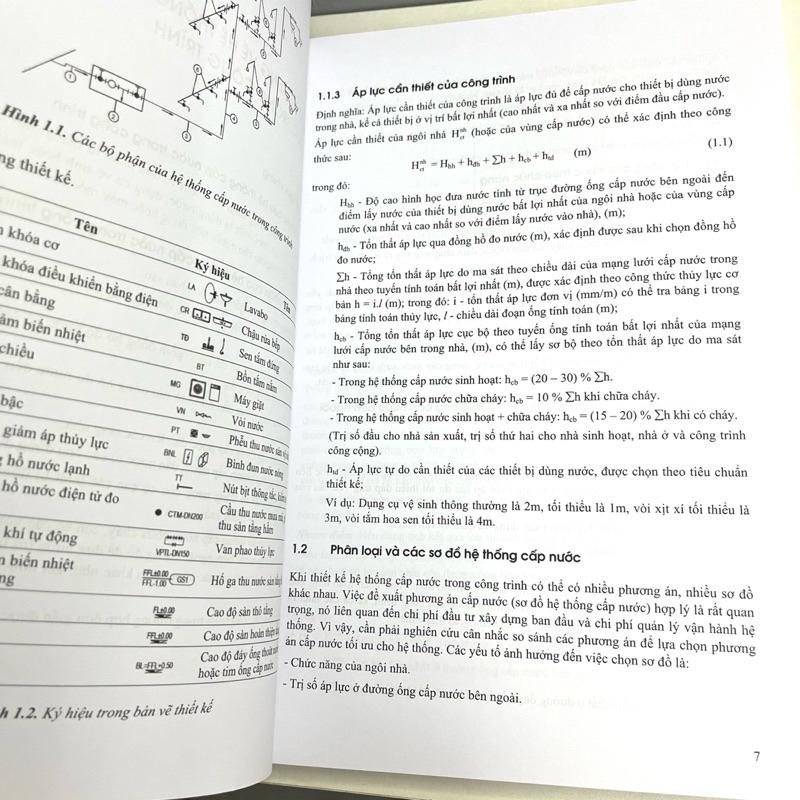 Hình 1.1. Các bộ phận của hệ thống cấp nước trong công trình
ng thiết kế.
Tên
Ký hiệu
Tên
khóa cơ
khóa điều khiển bằng điện
cân bằng
âm biến nhiệt
chiều
bậc
giảm áp thủy lực
g hồ nước lạnh
hồ nước điện tử đo
khí tự động
n biến nhiệt
ng
LA
Lavabo
CR
Chậu rửa bếp
TĐ
Sen tắm đứng
BT
Bồn tắm nằm
MG
Máy giặt
VN
Vòi nước
PT
Phễu thu nước sàn
BNL
Bình đun nước nóng
TT
Nút bịt thông tắc,
CTM-DN200
Cầu thu nước mưa
thu sàn tầng hầm
VPTL-DN150
Van phao thủy lực
FFL±0.00
FFL-1.00
GS1
Hố ga thu nước sàn tầng
FL±0.00
Cao độ sàn thô tầng
FFL±0.00
Cao độ sàn hoàn thiện
BL=FFL+0.50
Cao độ đáy ống thoát nước
hoặc tim ống cấp nước
h 1.2. Ký hiệu trong bản vẽ thiết kế
1.1.3 Áp lực cần thiết của công trình
Định nghĩa: Áp lực cần thiết của công trình là áp lực đủ để cấp nước cho thiết bị dùng nước
trong nhà, kể cả thiết bị ở vị trí bất lợi nhất (cao nhất và xa nhất so với điểm đầu cấp nước).
Áp lực cần thiết của ngôi nhà H_ct^nh (hoặc của vùng cấp nước) có thể xác định theo công
thức sau:
H_ct^nh = H_hh + h_đh + ∑h + h_cb + h_td (m) (1.1)
trong đó:
H_hh - Độ cao hình học đưa nước tính từ trục đường ống cấp nước bên ngoài đến
điểm lấy nước của thiết bị dùng nước bất lợi nhất của ngôi nhà hoặc của vùng cấp
nước (xa nhất và cao nhất so với điểm lấy nước vào nhà), (m);
h_đh - Tổn thất áp lực qua đồng hồ đo nước (m), xác định được sau khi chọn đồng hồ
đo nước;
∑h - Tổng tổn thất áp lực do ma sát theo chiều dài của mạng lưới cấp nước trong
nhà theo tuyến tính toán bất lợi nhất (m), được xác định theo công thức thủy lực cơ
bản h = i.l (m); trong đó: i - tổn thất áp lực đơn vị (mm/m) có thể tra bảng i trong
bảng tính toán thủy lực, l - chiều dài đoạn ống tính toán (m);
h_cb - Tổng tổn thất áp lực cục bộ theo tuyến ống tính toán bất lợi nhất của mạng
lưới cấp nước bên trong nhà, (m), có thể lấy sơ bộ theo tổn thất áp lực do ma sát
như sau:
- Trong hệ thống cấp nước sinh hoạt: h_cb = (20 – 30) % ∑h.
- Trong hệ thống cấp nước chữa cháy: h_cb = 10 % ∑h khi chữa cháy.
- Trong hệ thống cấp nước sinh hoạt + chữa cháy: h_cb = (15 – 20) % ∑h khi có cháy.
(Trị số đầu cho nhà sản xuất, trị số thứ hai cho nhà sinh hoạt, nhà ở và công trình
công cộng).
h_td - Áp lực tự do cần thiết của các thiết bị dùng nước, được chọn theo tiêu chuẩn
thiết kế;
Ví dụ: Dụng cụ vệ sinh thông thường là 2m, tối thiểu là 1m, vòi xịt xí tối thiểu là
3m, vòi tắm hoa sen tối thiểu là 4m.
1.2 Phân loại và các sơ đồ hệ thống cấp nước
Khi thiết kế hệ thống cấp nước trong công trình có thể có nhiều phương án, nhiều sơ đồ
khác nhau. Việc đề xuất phương án cấp nước (sơ đồ hệ thống cấp nước) hợp lý là rất quan
trọng, nó liên quan đến chi phí đầu tư xây dựng ban đầu và chi phí quản lý vận hành hệ
thống. Vì vậy, cần phải nghiên cứu cân nhắc so sánh các phương án để lựa chọn phương
án cấp nước tối ưu cho hệ thống. Các yếu tố ảnh hưởng đến việc chọn sơ đồ là:
- Chức năng của ngôi nhà.
- Trị số áp lực ở đường ống cấp nước bên ngoài.
7